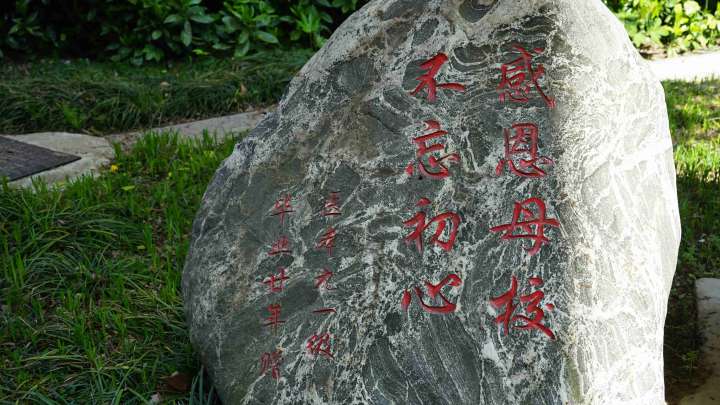 感恩母校
不忘初心
医本九一级
毕业廿年赠